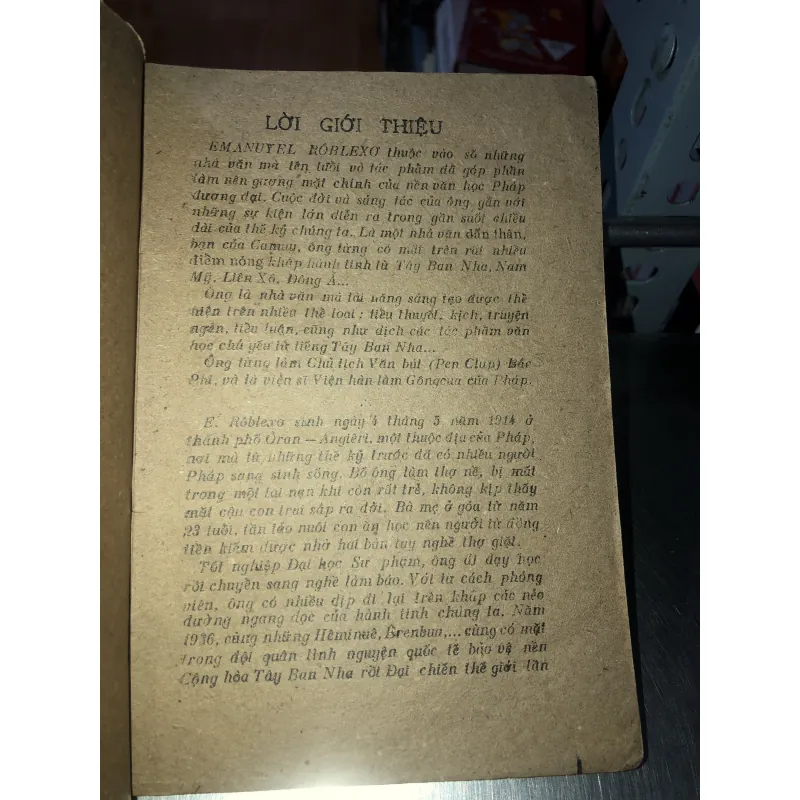 LỜI GIỚI THIỆU
EMANUYEL RÔBLEXƠ thuộc vào số những
nhà văn mà tên tuổi và tác phẩm đã góp phần
làm nên gương mặt chính của nền văn học Pháp
đương đại. Cuộc đời và sáng tác của ông gắn với
những sự kiện lớn diễn ra trong gần suốt chiều
dài của thế kỷ chúng ta. Là một nhà văn dấn thân,
bạn của Camuy, ông từng có mặt trên rất nhiều
điểm nóng khắp hành tinh từ Tây Ban Nha, Nam
Mỹ, Liên Xô, Đông Á...
Ông là nhà văn mà tài năng sáng tạo được thể
hiện trên nhiều thể loại : tiểu thuyết, kịch, truyện
ngắn, tiểu luận, cũng như dịch các tác phẩm văn
học chủ yếu từ tiếng Tây Ban Nha...
Ông từng làm Chủ tịch Văn bút (Pen Clup) Bắc
Phi, và là viện sĩ Viện hàn lâm Gôngcua của Pháp.
E. Rôblexơ sinh ngày 4 tháng 5 năm 1914 ở
thành phố Ôran – Angiêri, một thuộc địa của Pháp,
nơi mà từ những thế kỷ trước đã có nhiều người
Pháp sang sinh sống. Bố ông làm thợ nề, bị mất
trong một tai nạn khi còn rất trẻ, không kịp thấy
mặt cậu con trai sắp ra đời. Bà mẹ ở góa từ năm
23 tuổi, tần tảo nuôi con ăn học nên người từ đồng
tiền kiếm được nhờ hai bàn tay nghề thợ giặt.
Tốt nghiệp Đại học Sư phạm, ông đi dạy học
rồi chuyển sang nghề làm báo. Với tư cách phóng
viên, ông có nhiều dịp đi lại trên khắp các nẻo
đường ngang dọc của hành tinh chúng ta. Năm
1936, cùng những Hêminuê, Êrenbua,... cùng có mặt
trong đội quân tình nguyện quốc tế bảo vệ nền
Cộng hòa Tây Ban Nha rồi Đại chiến thế giới lần